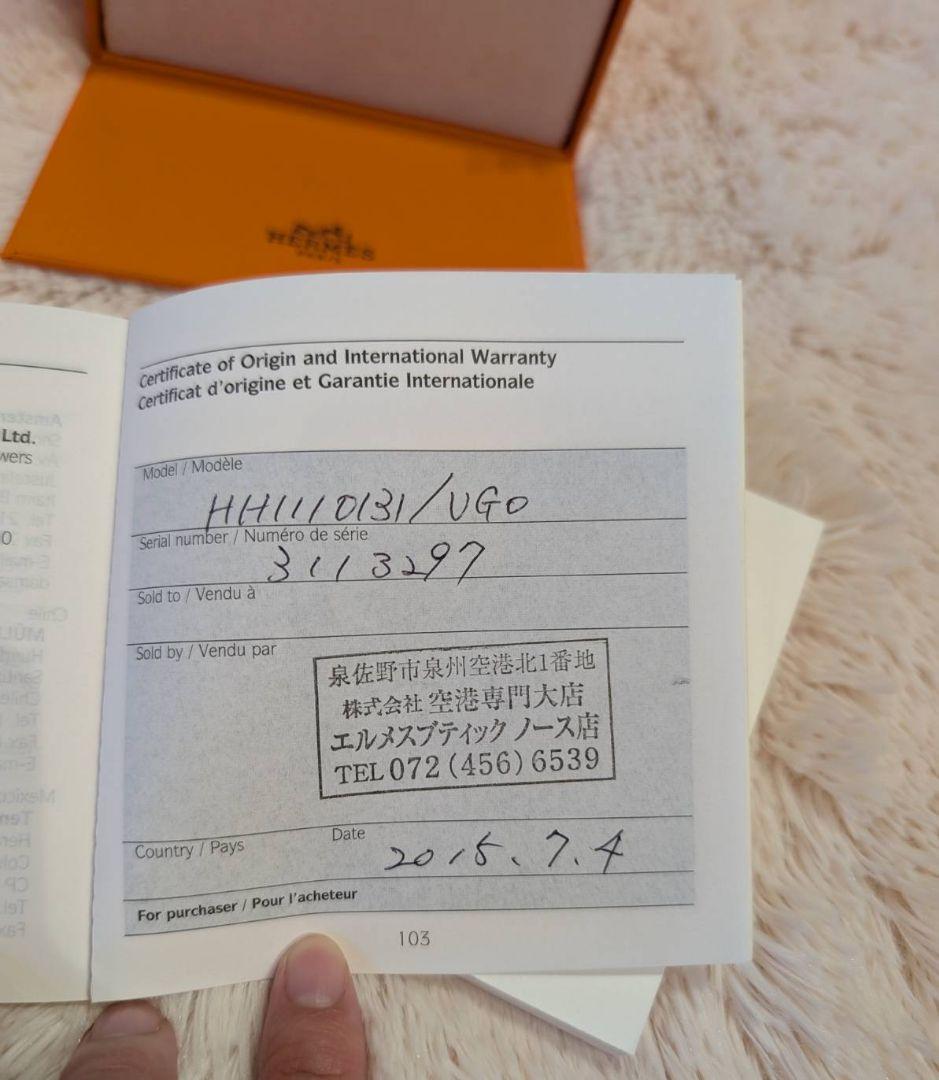 HERMES
PARIS
Ltd.
wers
0
Certificate of Origin and International Warranty
Certificat d'origine et Garantie Internationale
Model / Modèle
HH1110131/UGO
Serial number / Numéro de série
3113297
Sold to / Vendu à
Sold by / Vendu par
泉佐野市泉州空港北1番地
株式会社 空港専門大店
エルメスブティック ノース店
TEL 072 (456) 6539
Country / Pays
Date
2015.7.4
For purchaser / Pour l'acheteur
103